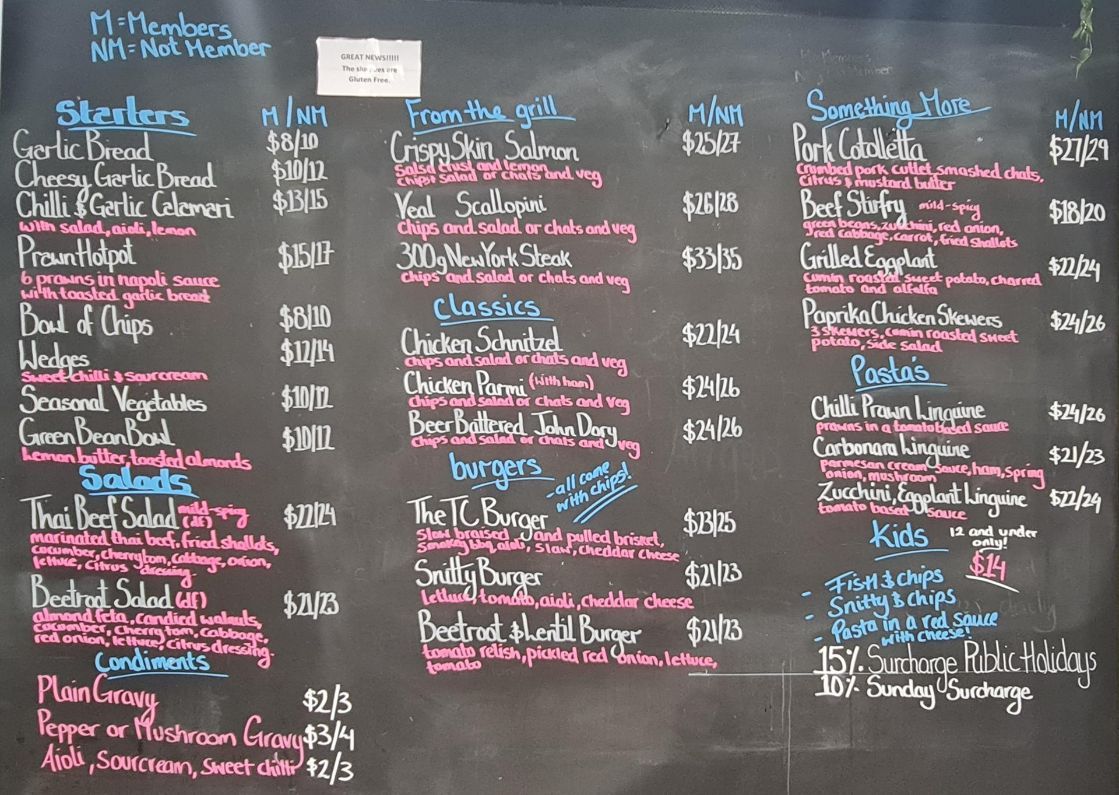 M=Members
NM=Not Member
GREAT NEWS!!!!!
Gluten Free.
Starters M/NM
Garlic Bread $8/10
Cheesy Garlic Bread $10/12
Chilli & Garlic Calamari $13/15
with salad, aioli, lemon
Prawn Hotpot $15/17
6 prawns in napoli sauce
with toasted garlic bread
Bowl of Chips $8/10
Wedges $12/14
sweet chilli & sourcream
Seasonal Vegetables $10/12
Green Bean Bowl $10/12
Lemon butter, toasted almonds
Salads
Thai Beef Salad mild-spicy (df) $22/24
marinated thai beef, fried shallots,
cucumber, cherry tom, cabbage, onion,
lettuce, citrus dressing.
Beetroot Salad (df) $21/23
almond feta, candied walnuts,
cucumber, cherry tom, cabbage,
red onion, lettuce, citrus dressing.
Condiments
Plain Gravy $2/3
Pepper or Mushroom Gravy $3/4
Aioli, sourcream, sweet chilli $2/3
From the grill M/NM
Crispy Skin Salmon $25/27
Salsa crust and lemon
chips salad or chats and veg
Veal Scallopini $26/28
chips and salad or chats and veg
300g New York Steak $33/35
chips and salad or chats and veg
Classics
Chicken Schnitzel $22/24
chips and salad or chats and veg
Chicken Parmi (with ham) $24/26
chips and salad or chats and veg
Beer Battered John Dory $24/26
chips and salad or chats and veg
burgers
- all come
with chips!
The TC Burger $23/25
Slow braised and pulled brisket,
Smokey bbq, aioli, slaw, cheddar cheese
Snitty Burger $21/23
lettuce, tomato, aioli, cheddar cheese
Beetroot & Lentil Burger $21/23
tomato relish, pickled red onion, lettuce,
tomato
Something More M/NM
Pork Cotolletta $27/29
crumbed pork cutlet, smashed chats,
citrus & mustard butter
Beef Stirfry mild-spicy $18/20
green beans, zucchini, red onion,
red cabbage, carrot, fried shallots
Grilled Eggplant $22/24
cumin roasted sweet potato, charred
tomato and alfalfa
Paprika Chicken Skewers $24/26
3 skewers, cumin roasted sweet
potato, side salad
Pasta's
Chilli Prawn Linguine $24/26
prawns in a tomato based sauce
Carbonara Linguine $21/23
parmesan cream sauce, ham, spring
onion, mushroom
Zucchini, Eggplant Linguine $22/24
tomato based sauce
Kids 12 and under
only!
$14
- FISH & chips
- Snitty & chips
- Pasta in a red sauce
with cheese!
15% Surcharge Public Holidays
10% Sunday Surcharge